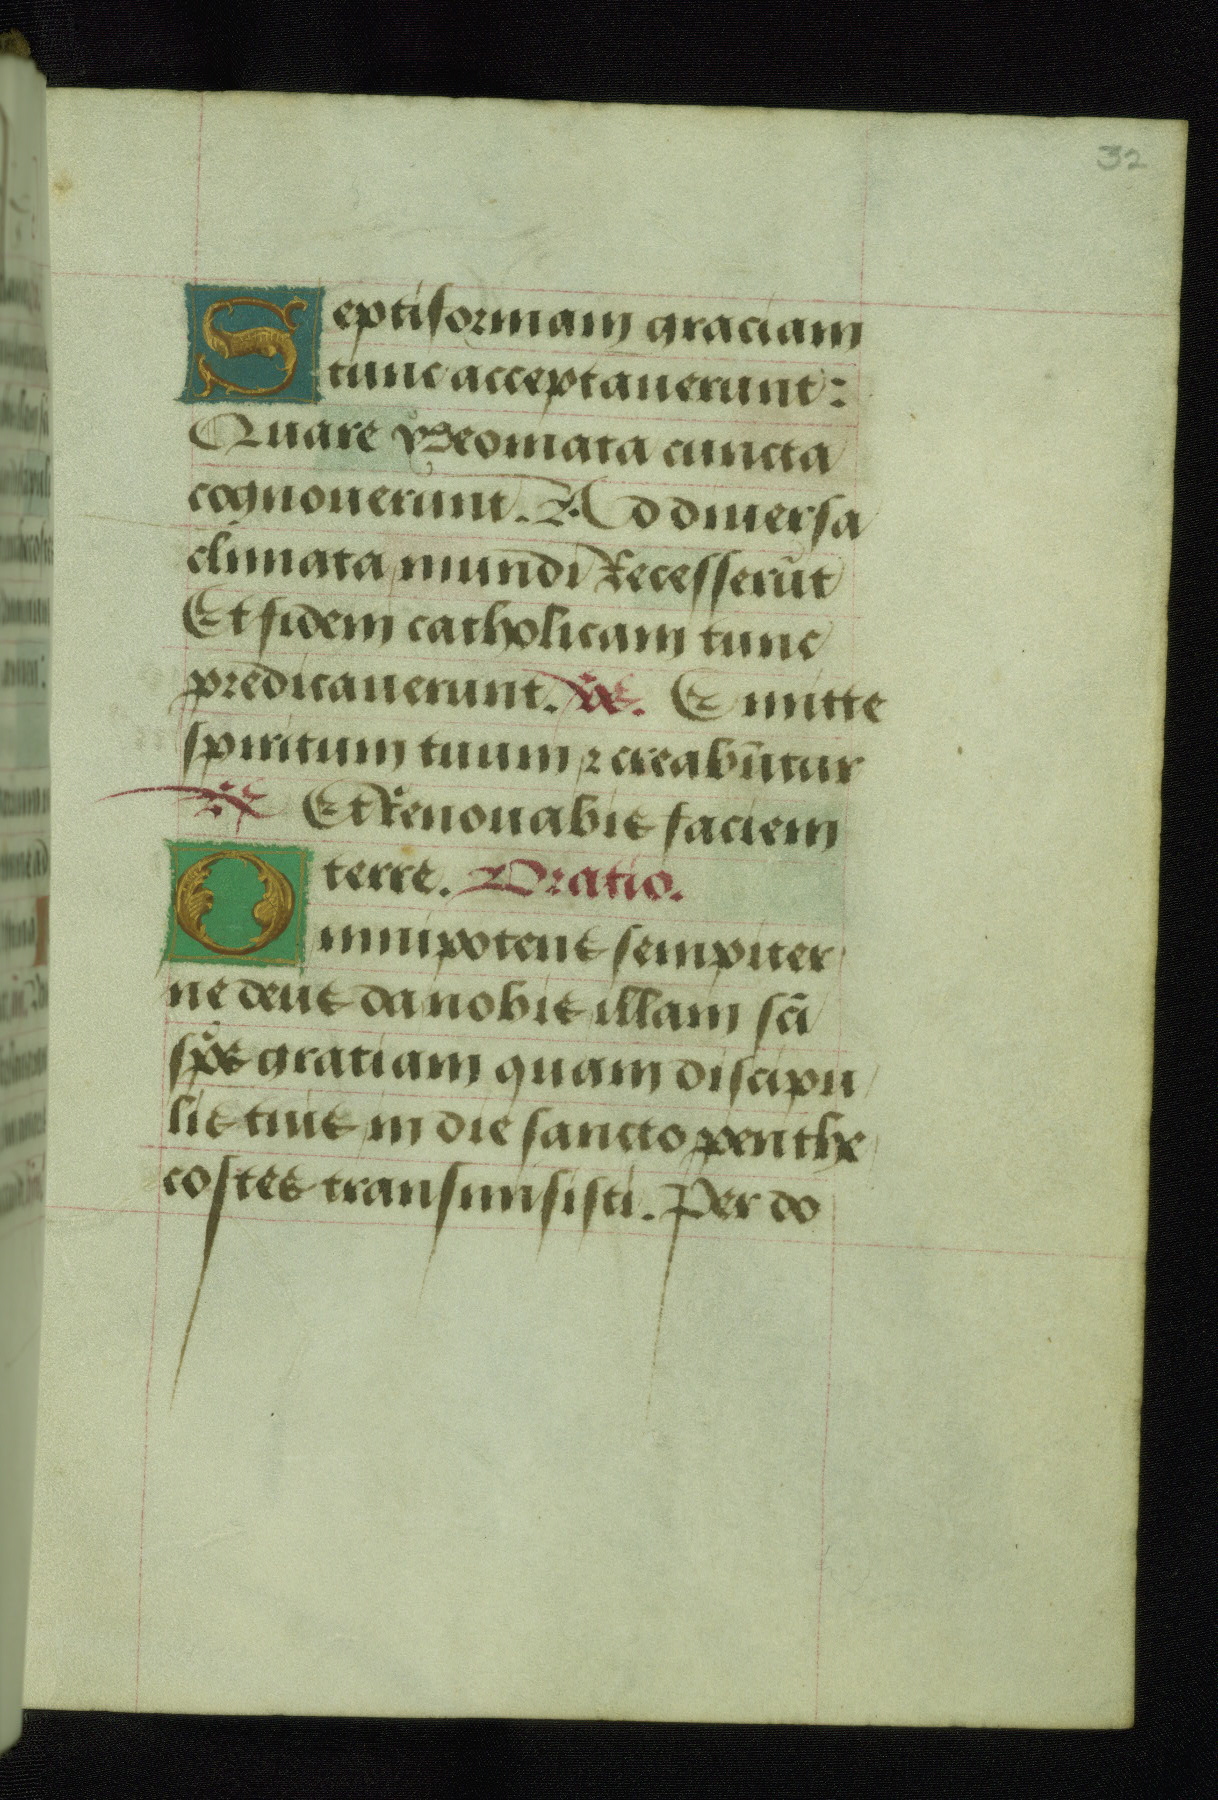 32
Septiformam graciam
tunc acceptauerunt:
Quare ydeomata cuncta
cognouerunt. Ad diuersa
climata mundi Recesserūt
Et fidem catholicam tunc
predicauerunt. ℣. Emitte
spiritum tuum ⁊ creabūtur
℟ Et Renouabis faciem
terre. Oratio.
Omnipotens sempiter
ne deus da nobis illam sc̄i
sp̄s gratiam quam discipu
lis tuis in die sancto penthe
costes transmisisti. Per do